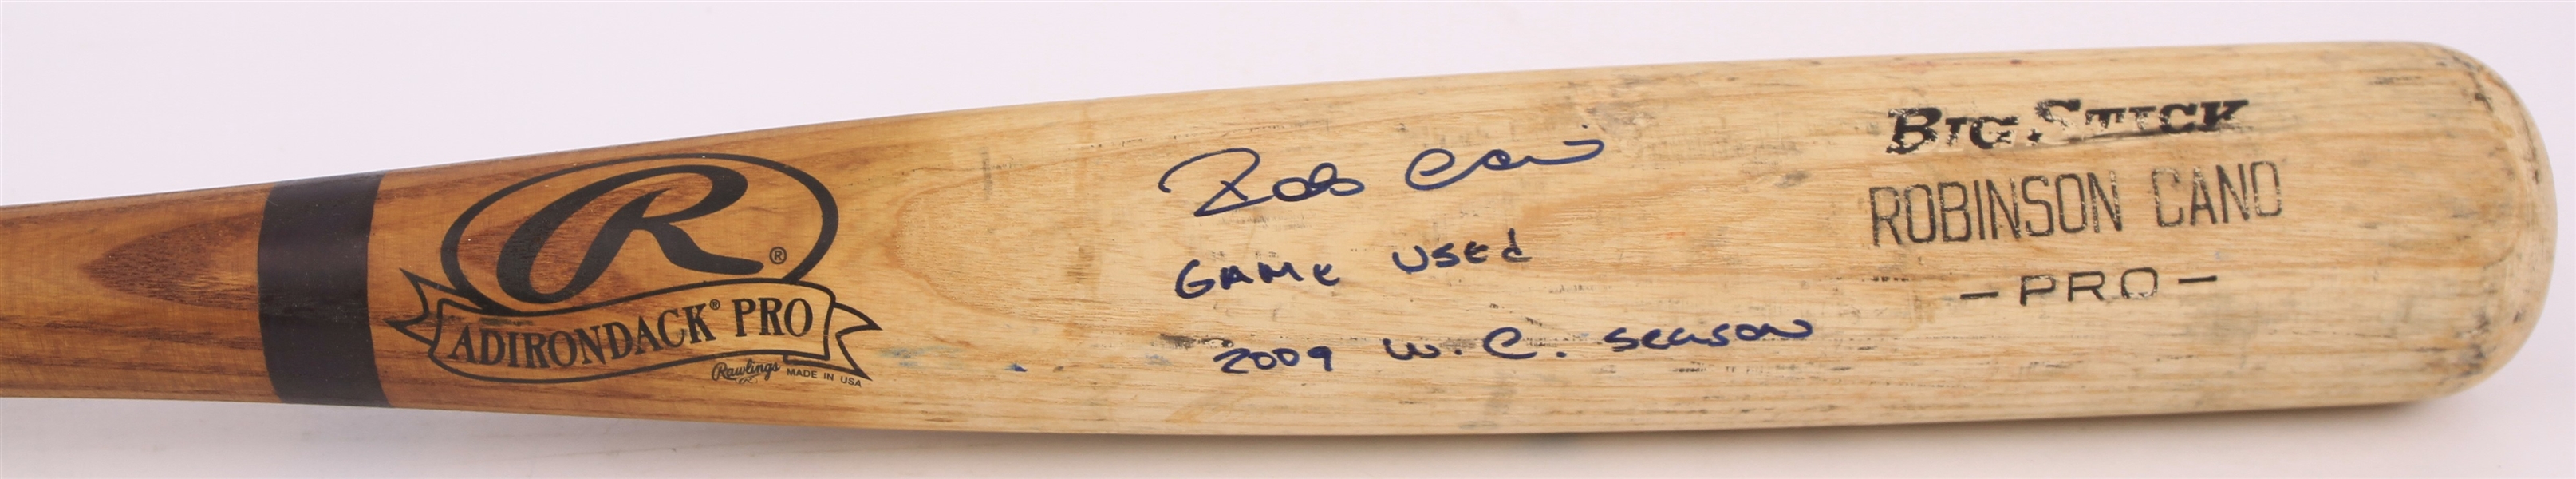 R®
ADIRONDACK® PRO
Rawlings MADE IN USA
Rob Cano
GAMe Used
2009 W.C. Season
BIG STICK
ROBINSON CANO
- PRO -